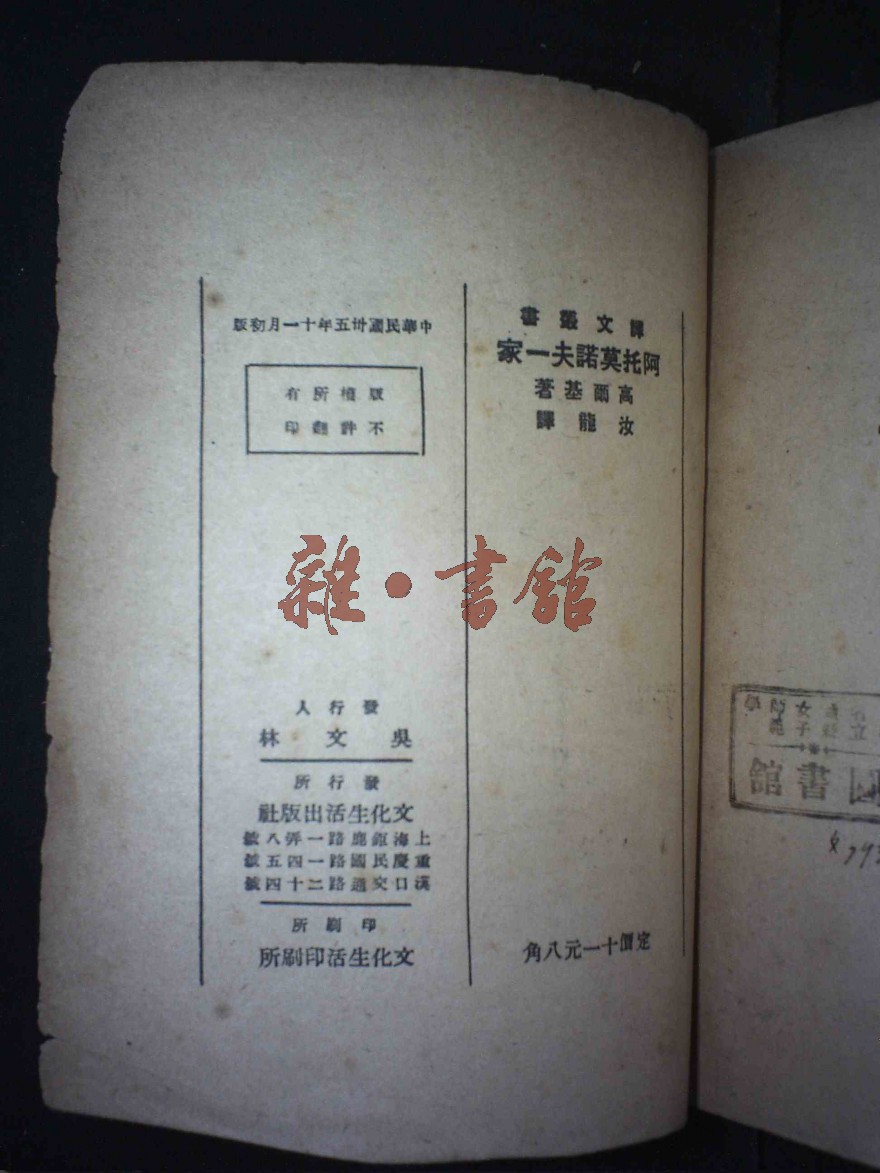 譯文叢書
阿托莫諾夫一家
高爾基著
汝龍譯
定價十一元八角
中華民國卅五年十一月初版
版權所有
不許翻印
雜·書館
發行人
吳文林
發行所
文化生活出版社
上海鉅鹿路一弄八號
重慶民國路一四五號
漢口交通路二十四號
印刷所
文化生活印刷所
女師學
子範
圖書館